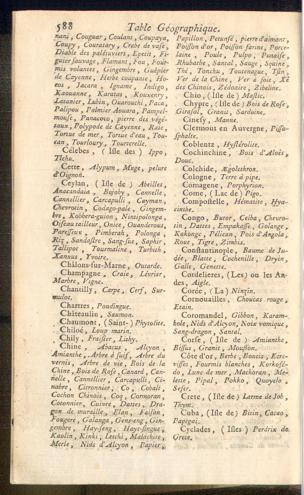 588 Table Géographique.
nani, Couguar, Coulans, Coupaya,
Coupy, Couratary, Crabe de vase,
Diable des palétuviers, Epeit, Fi-
guier sauvage, Flamant, Fou, Four-
mis volantes, Gingembre, Guêpier
de Cayenne, Herbe coupante,
nos, Jacara, Iguans, Indigo,
Kaouanne, Karatas,
Latanier, Lubin, Ouarouchi, Paca,
Palipou, Palmier Aouara,
mouse, Panacoco, pierre des vége-
aux, Polypode de Cayenne, Raie,
Tortue de mer, Tortue d'eau, Tou-
can, Tourlours, Tourterelle.
Célebes, (Isle des) Ippo,
Ticha.
Cette, Alypum, Muge, pelure
d'Oignon.
Ceylan, (Isle de) Aveilles,
Anacandaia, Cannelle,
Cannellier, Carcapulli, Cayman,
Chevrotin, Codaga-pale, Gingem-
bre, Kobbera-guion, Nintipolonga,
Oiseau tailleur, Onite, Ouanderous,
Paresseux, Pimberah, Polonga,
Riz, Sandastre, Sang-sue, Saphir,
Tallipot, Tourmaline, Turbith,
Xanxus, Yvoire.
Châlons-sur-Marne, Outarde.
Champagne, Craie, Lévrier,
Marbre, Vigne.
Chantilly, Carpe, Cerf, Sur-
mulot.
Chartres, Poudingue.
Châteaulin, Saumon.
Chaumont, (Saint-) Phytolite.
Chiloé, Loup marin.
Chily, Fraisier, Luhy.
Chine, Abacus, Alcyon,
Amianthe, Arbre à suif, Arbre du
vernis, Arbre de vie, Bois de la
Chine, Bois de Rose, Canard, Can-
nelle, Cannellier, Carcapulli, Ci-
nabre, Citronnier, Co, Cobalt,
Cochon Chinois, Coq, Cormoran,
Cotonnier, Cuivre, Dattes, Dra-
gon de muraille, Elan, Faisan,
Fougere, Galanga, Gens-eng, Gin-
gembre, Hay-seng, Hayt-singue,
Kaolin, Kinki, Letchi, Malachite,
Merle, Nids d'Alcyon, Papier,
Papillon, Petunsé, pierre d'aimant,
Poisson d'or, Poisson farine, Porce-
laine, Poule, Pulpo, Punaise,
Rhubarbe, Santal, Sauge, Squine,
Thé, Tonchu, Toutenague, Tsin,
Vin de la Chine, Ver à soie,
des Chinois, Zédoaire, Zibeline.
Chio, (Isle de) Mastic.
Chypre, (Isle de) Bois de Rose,
Girasol, Granit, Sardoine.
Cinefy, Manne.
Clermont en Auvergne, Piss-
asphalte.
Coblentz, Hystérolite.
Cochinchine, Bois d'Aloès,
Douc.
Colchide, Egolethron.
Cologne, Terre à pipe.
Comagene, Porphyrion.
Come, (Lac de) Pigo.
Compostelle, Hématite, Hya-
cinthe.
Congo, Butor, Ceiba, Chevro-
tin, Dattes, Empakasse, Golange,
Kakongo, Pélican, Pois d'Angola,
Roue, Tigre, Zimbis.
Constantinople, Baume de Ju-
dée, Blatte, Cochenille, Dryin,
Galle, Genette.
Cordelieres, (Les) ou les An-
des, Aigle.
Corée, (La) Ninzin.
Cornouailles, Choucas rouge,
Etain.
Coromandel, Gibbon, Karam-
bole, Nids d'Alcyon, Noix vomique,
Sang-dragon, Santal.
Corse, (Isle de) Amianthe,
Bissus, Granit, Mouflon.
Côte d'or, Berbe, Boucia, Ecre-
visses, Fourmis blanches, Korkofe-
do, Lane de mer, Machoran, Me-
lette, Pipal, Pokko, Quoyelo,
Sefer.
Crete, (Isle de) Larme de Job,
Thym.
Cuba, (Isle de) Bison, Cacao,
Papegai.
Cyclades, (Isles) Perdrix de
Grece.